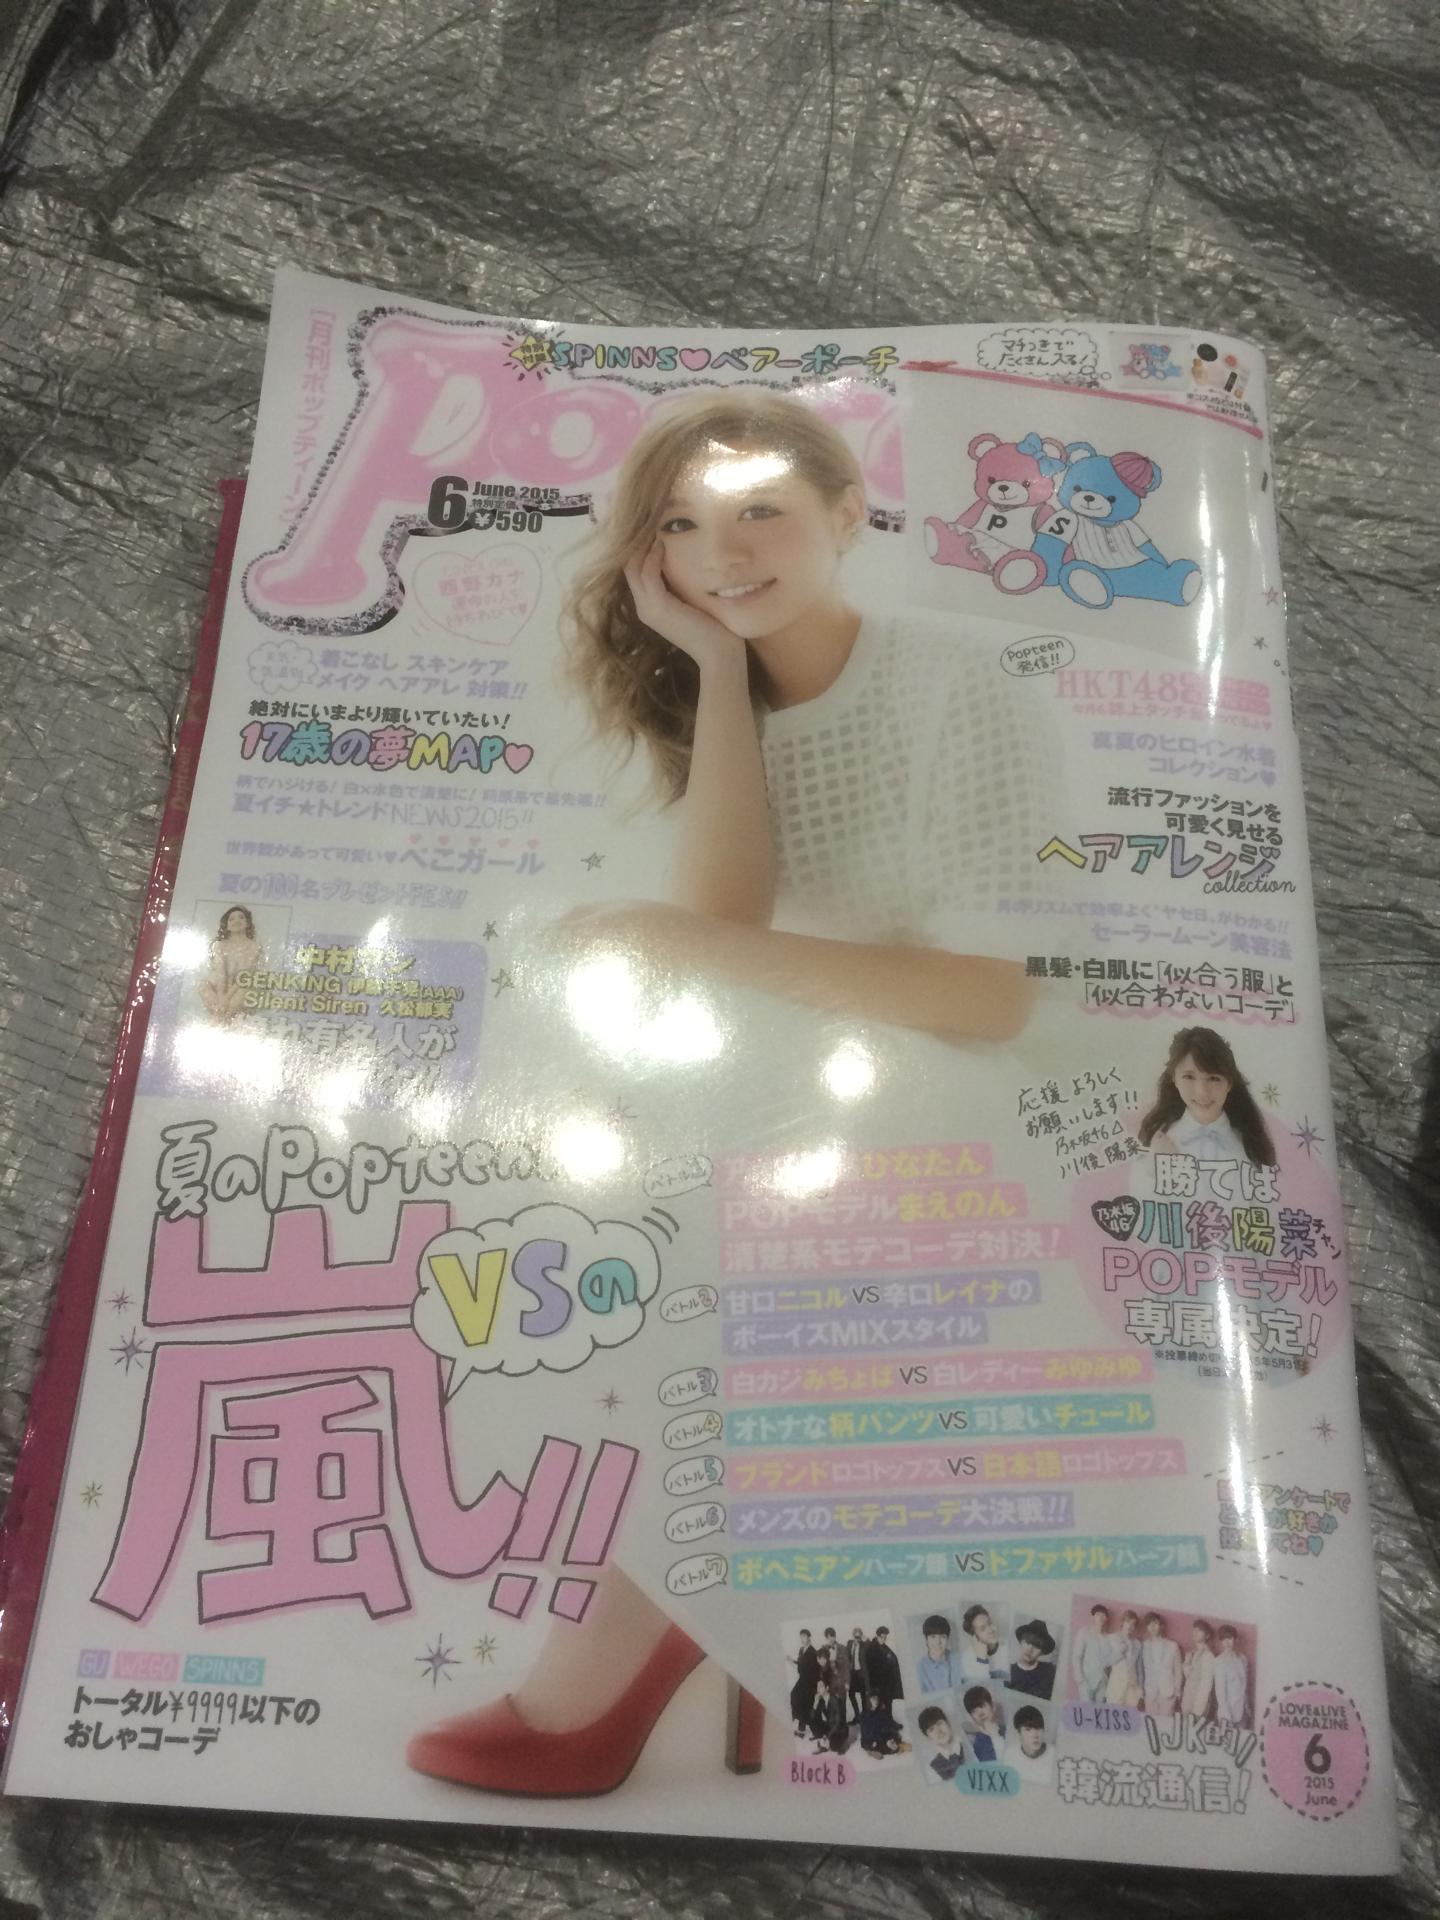 月刊ポップティーン
特別付録
SPINNS♥ベアーポーチ
マチつきで
たくさん入る!
Po
6
June 2015
特別定価
¥590
P
S
西野カナ
着こなし スキンケア
メイク ヘアアレ 対策!!
絶対にいまより輝いていたい!
17歳の夢MAP♥
柄でハジける! 白×水色で清楚に! 
夏イチ★トレンドNEWS2015!!
世界観があって可愛い♥ぺこガール
夏の100名プレゼントFES!!
中村
GENKING 伊藤千晃(AAA)
Silent Siren 久松郁実
有名人が
Popteen
発信!!
HKT48
真夏のヒロイン水着
コレクション♥
流行ファッションを
可愛く見せる
ヘアアレンジ
collection
リズムで効率よく"ヤセ日"がわかる!!
セーラームーン美容法
黒髪・白肌に「似合う服」と
「似合わないコーデ」
応援よろしく
お願いします!!
乃木坂46
川後陽菜
勝てば
乃木坂46
川後陽菜チャン
POPモデル
専属決定!
夏のPopteen
嵐!!
VSの
バトル
ひなたん
POPモデルまえのん
清楚系モテコーデ対決!
バトル2
甘口ニコルVS辛口レイナの
ボーイズMIXスタイル
バトル3
白カジみちょぱVS白レディーみゆみゆ
バトル4
オトナな柄パンツVS可愛いチュール
バトル5
ブランドロゴトップスVS日本語ロゴトップス
バトル6
メンズのモテコーデ大決戦!!
バトル7
ボヘミアンハーフ顔VSドファサルハーフ顔
アンケートで
GU WEGO SPINNS
トータル¥9999以下の
おしゃコーデ
Block B
VIXX
U-KISS
JK的
韓流通信!
LOVE&LIVE
MAGAZINE
6
2015
June